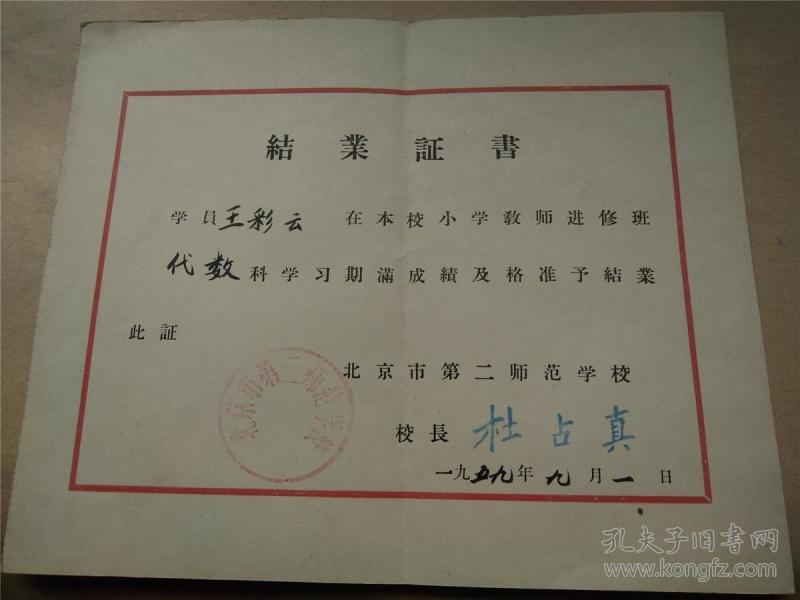 結業証書
学員王彩云在本校小学教师进修班
代数科学习期滿成績及格准予結業
此証
北京市第二师范学校
北京市第二师范学校
校長 杜占真
一九五九年九月一日
孔夫子旧书网
www.kongfz.com